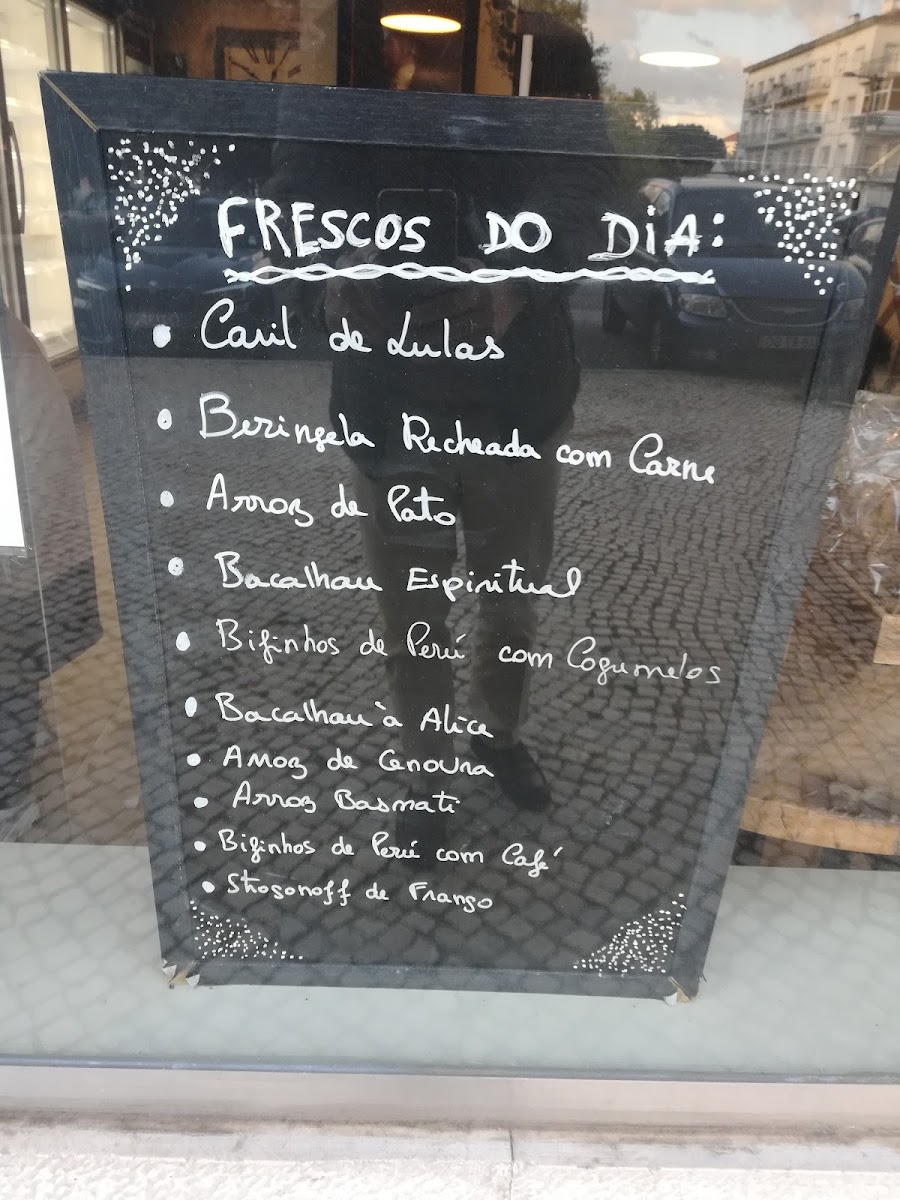 FRESCOS DO DIA:
• Caril de Lulas
• Beringela Recheada com Carne
• Arroz de Pato
• Bacalhau Espiritual
• Bifinhos de Perú com Cogumelos
• Bacalhau à Alice
• Arroz de Cenoura
• Arroz Basmati
• Bifinhos de Perú com Café
• Strogonoff de Frango